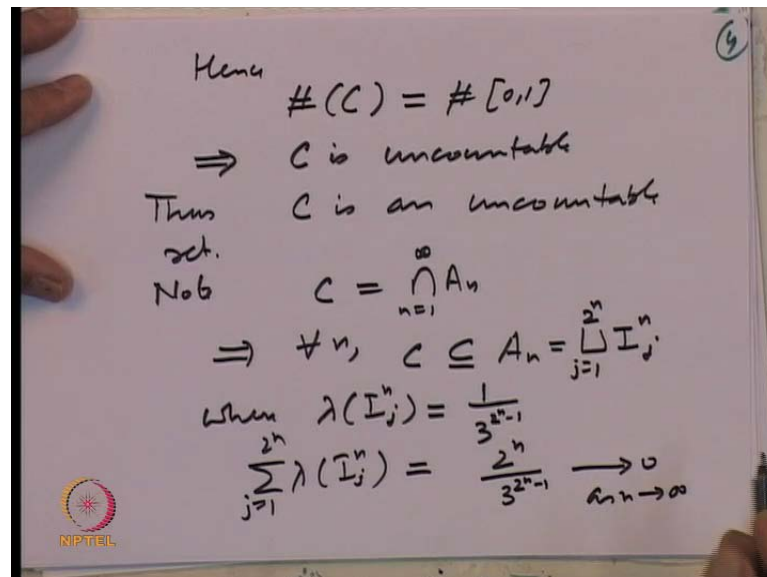 ④
Hence
#(C) = #[0,1]
⇒ C is uncountable
Thus C is an uncountable
set.
Note C = ⋂_{n=1}^{∞} A_n
⇒ ∀ n, C ⊆ A_n = ⨆_{j=1}^{2^n} I_j^n
when λ(I_j^n) = 1/3^{2^n-1}
∑_{j=1}^{2^n} λ(I_j^n) = 2^n/3^{2^n-1} → 0
as n → ∞
NPTEL